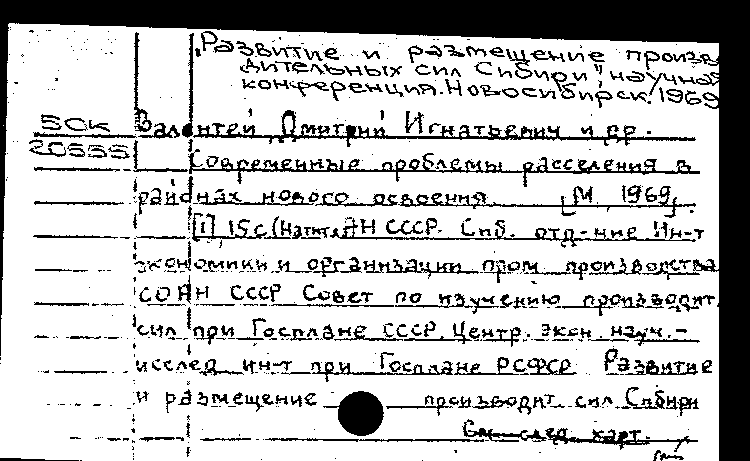 „Развитие и размещение произво
дительных сил Сибири", научная
конференция. Новосибирск. 1969
5СК
20555
Валентей, Дмитрий Игнатьевич и др.
Современные проблемы расселения в
районах нового освоения [М, 1969].
[1], 15с (На тит.л. АН СССР. Сиб. отд-ние Ин-т
экономики и организации пром производства
СОАН СССР Совет по изучению производит.
сил при Госплане СССР. Центр. экон. науч.-
исслед ин-т при Госплане РСФСР Развитие
и размещение производит. сил Сибири
См. след. карт.